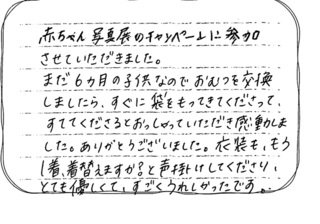 赤ちゃん写真展のキャンペーンに参加
させていただきました。
まだ6カ月の子供なのでおむつを交換
しましたら、すぐに袋をもってきてくださって、
すててくださるとおっしゃっていただき感動しま
した。ありがとうございました。衣装も、もう
1着、着替えますか?と声掛けしてくださり、
とても優しくて、すごくうれしかったです。